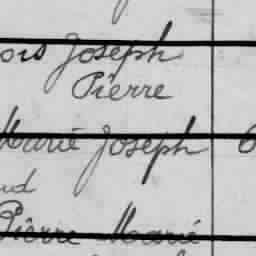 ois Joseph
Pierre
Marie Joseph
ud
Pierre Marie